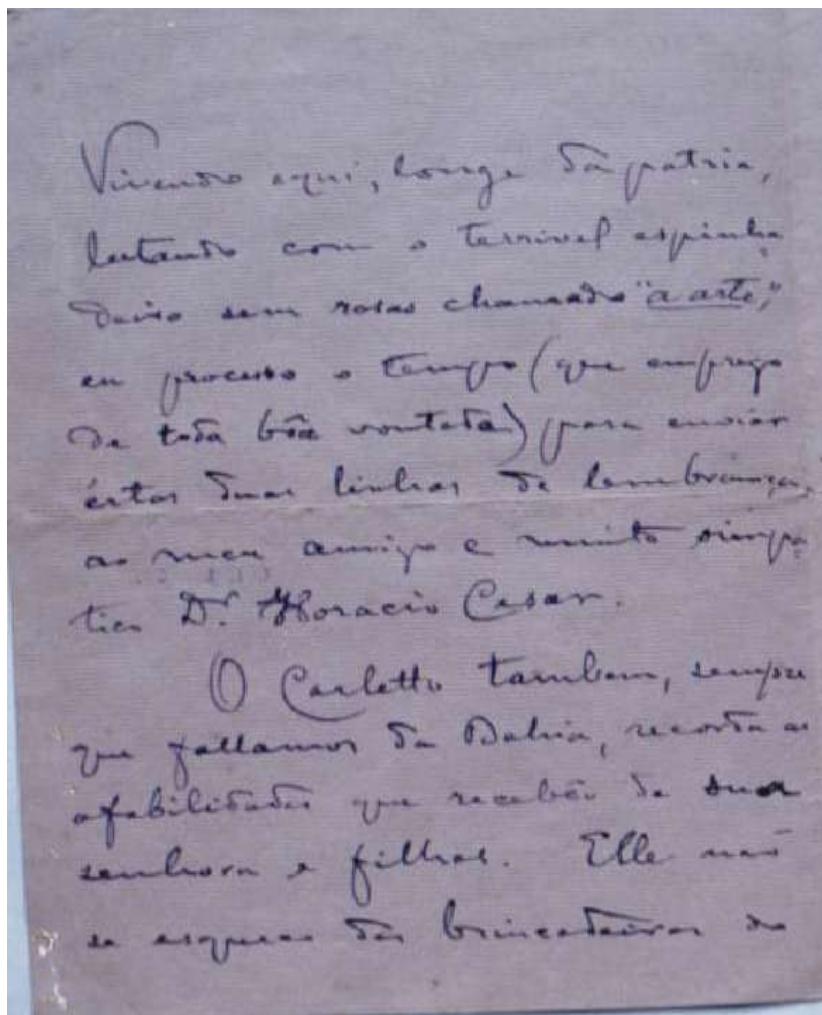 Vivendo aqui, longe da patria,
luctando com o terrivel espinha
deiro sem rosas chamado "a arte,"
eu procuro o tempo (que emprego
de toda bôa vontade) para enviar
éstas duas linhas de lembrança,
ao meu amigo e muito simpa
tico Dr. Horacio Cesar.
O Carletto tambem, sempre
que fallamos da Bahia, recorda as
afabilidades que recebêo de sua
senhora e filhas. Elle não
se esquece das brincadeiras do